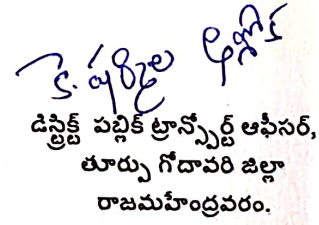 కె. షర్మిల అశోక
డిస్ట్రిక్ట్ పబ్లిక్ ట్రాన్స్పోర్ట్ ఆఫీసర్,
తూర్పు గోదావరి జిల్లా
రాజమహేంద్రవరం.